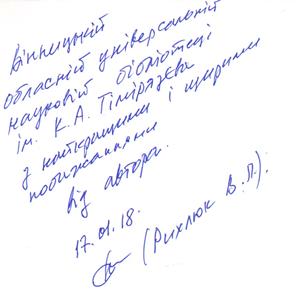 Вінницькій
обласній універсальній
науковій бібліотеці
ім. К.А. Тімірязєва
з найкращими і щирими
побажаннями
від автора.
17.01.18.
(Рихлюк В.П.).